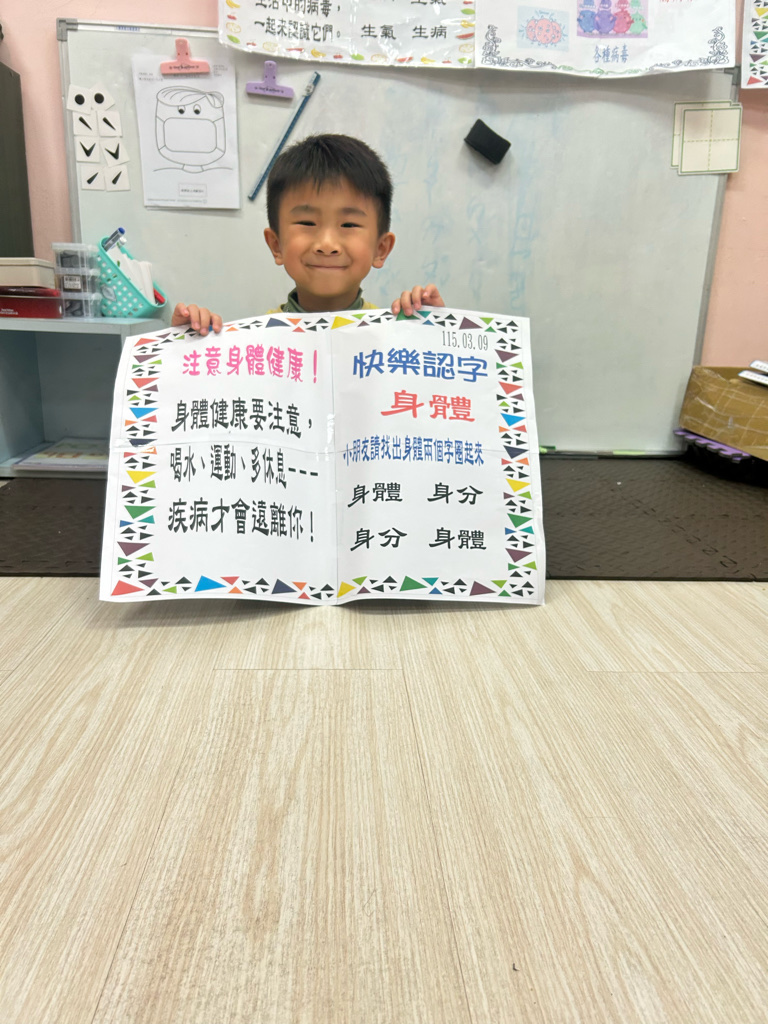 一起來認識它們。 生氣 生病
各種病毒
注意身體健康！
身體健康要注意，
喝水、運動、多休息---
疾病才會遠離你！
115.03.09
快樂認字
身體
小朋友請找出身體兩個字圈起來
身體 身分
身分 身體